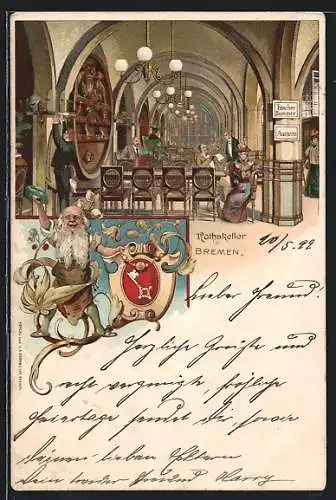 Frischer Hummer
Austern
Rathskeller
BREMEN.
20/5.99
Lieber Freund!
Herzliche Grüße und
recht vergnügte, fröhliche
Feiertage sendet Dir, sowie
Deinen lieben Eltern
Dein Freund Harry